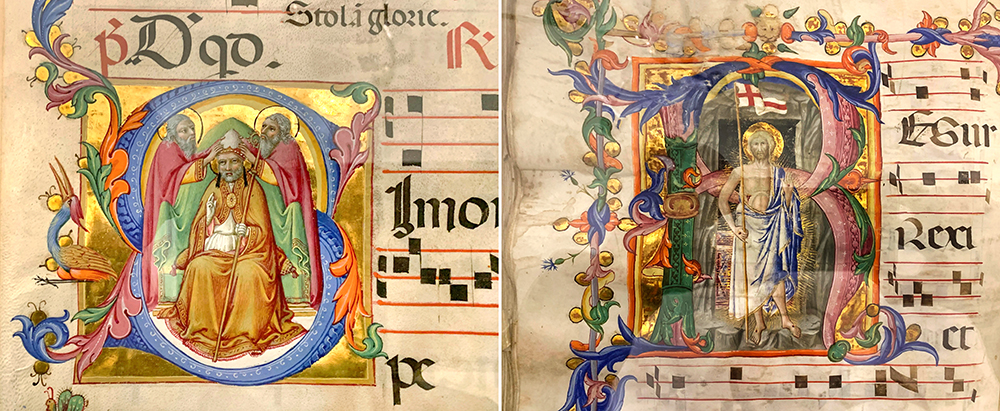 Stolā glorie.
p̄. D' qd. R
Imon
pe
RESur
Rexi
et